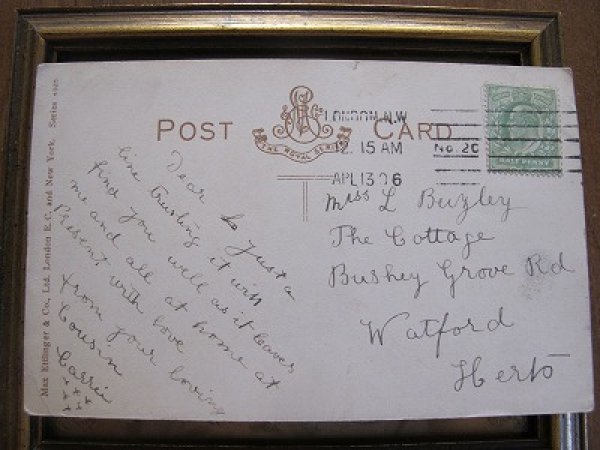 POST CARD
THE ROYAL SERIES
LONDON.N.W
12.15 AM
APL 13 06
No. 2C
HALF PENNY
Max Ettlinger & Co., Ltd. London E.C. and New York. Series
Dear L Just a
line trusting it will
find you well as it leaves
me and all at home at
Present with love
from your loving
Cousin
Carrie
xxxx
Miss L Buzley
The Cottage
Bushey Grove Rd
Watford
Herts